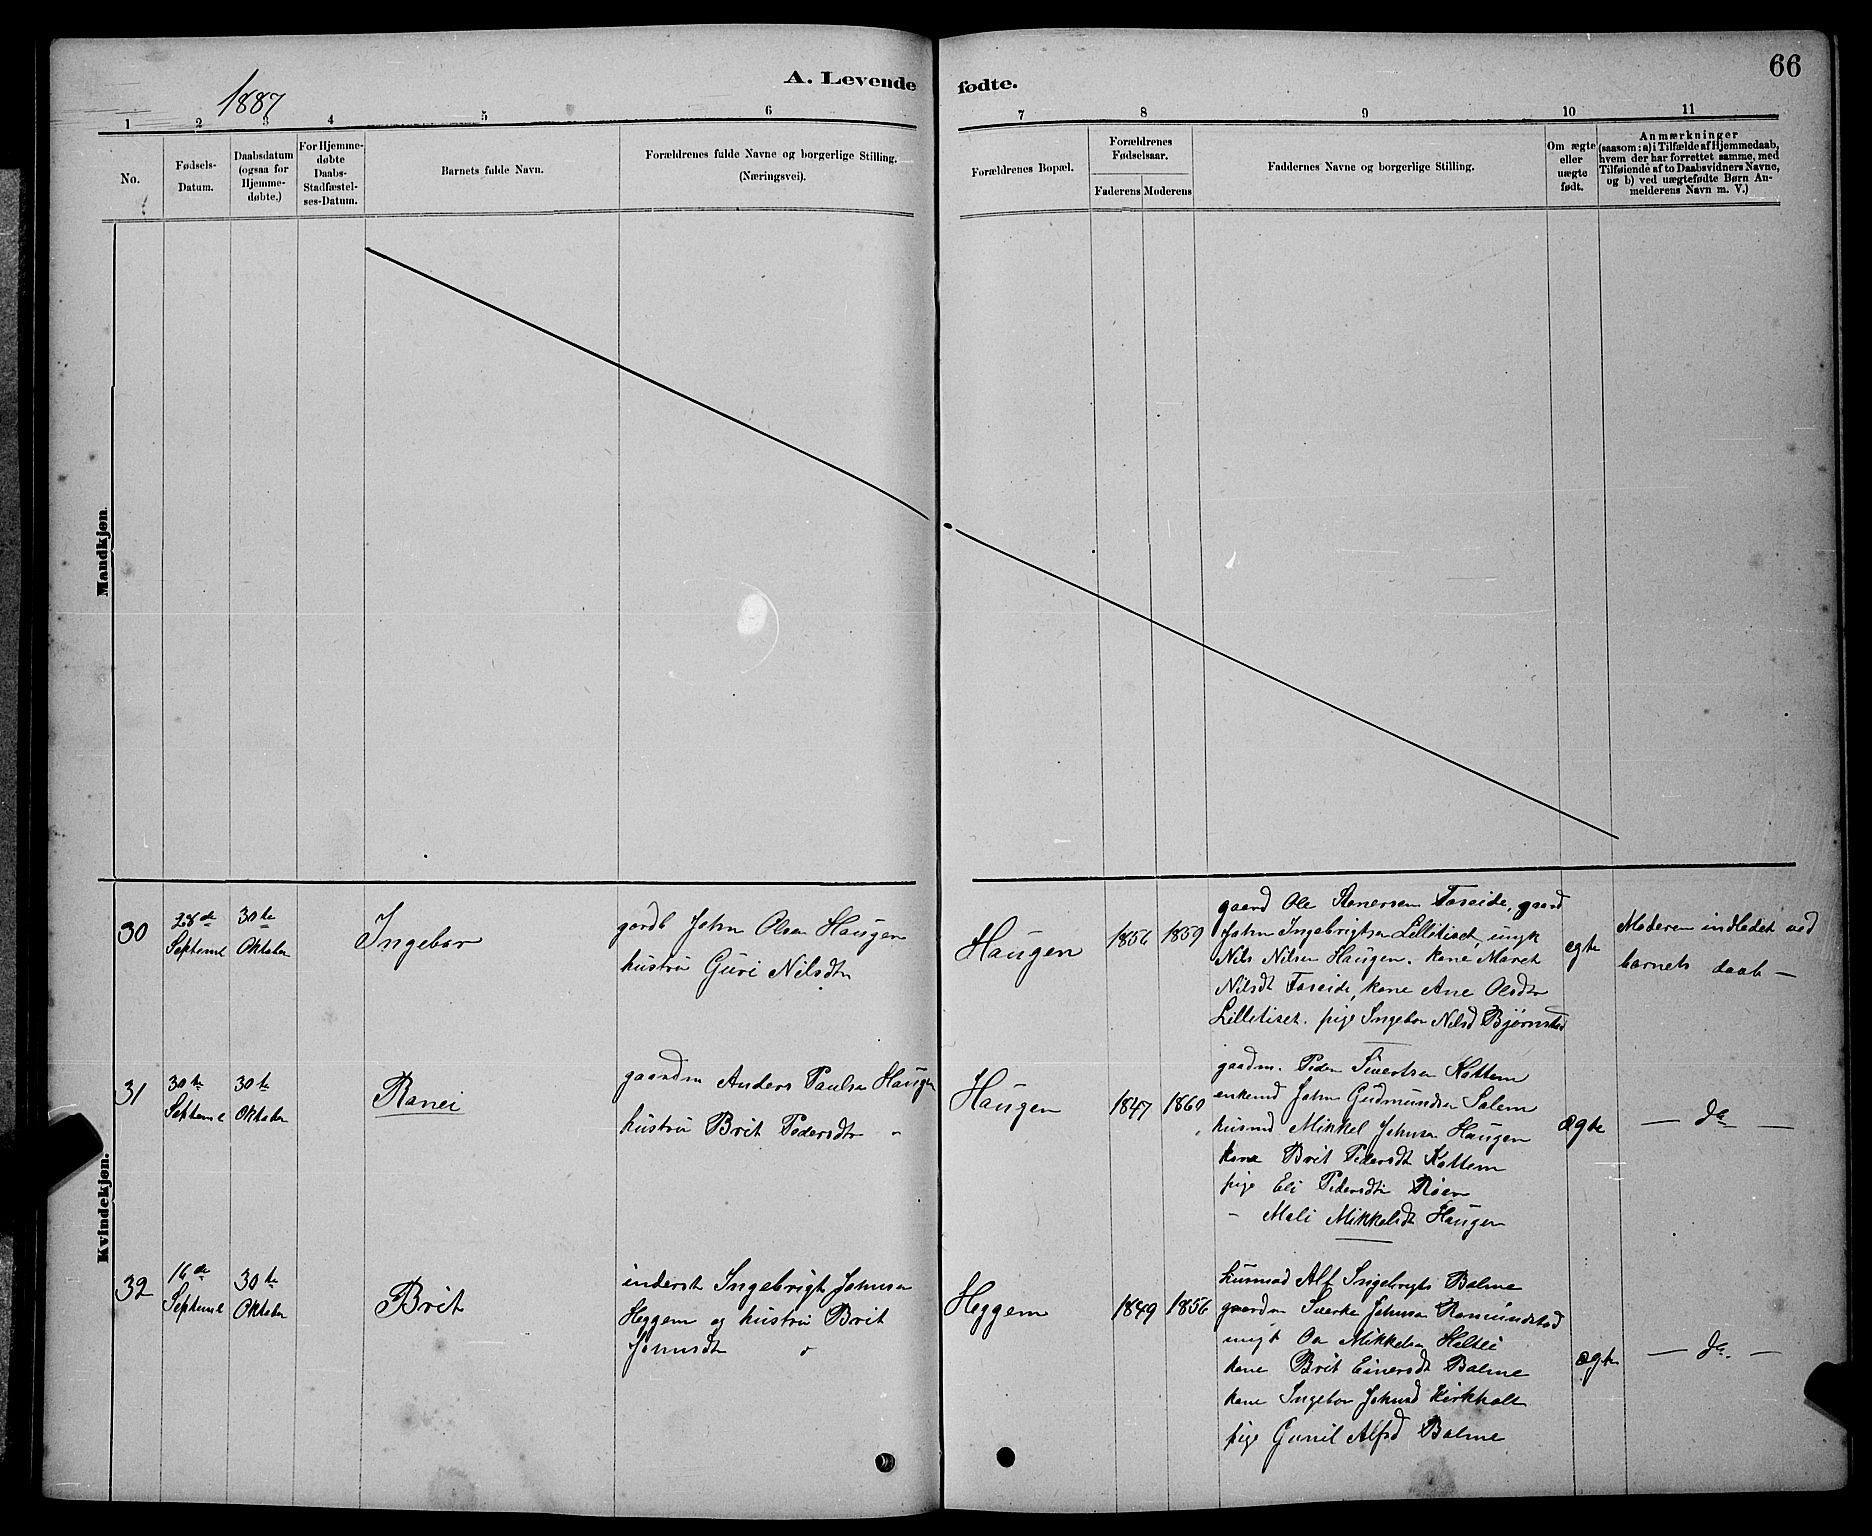 1887
A. Levende fødte.
66
1 2 3 4 5 6 7 8 9 10 11
No.
Fødsels-
Datum.
Daabsdatum
(ogsaa for
Hjemme-
døbte.)
For Hjemme-
døbte
Daabs-
Stadfæstel-
ses-Datum.
Barnets fulde Navn.
Forældrenes fulde Navne og borgerlige Stilling.
(Næringsvei).
Forældrenes Bopæl.
Forældrenes
Fødselsaar.
Faderens Moderens
Faddernes Navne og borgerlige Stilling.
Om ægte
eller
uægte
født.
Anmærkninger
(saasom: a) i Tilfælde af Hjemmedaab,
hvem der har forrettet samme, med
Tilføiende af to Daabsvidners Navne,
og b) ved uægtefødte Børn An-
melderens Navn m. V.)
Mandkjøn.
Kvindekjøn.
30
28de
Septemb
30te
Oktober
Ingebor
gardb John Olsen Haugen
hustru Guri Nilsdtr
Haugen
1856 1859
gaard Ole Stenersen Foseide, gaard
John Ingebrigtsen Lilletiset, ungk
Nils Nilsen Haugen. kone Maret
Nilsdt Foseide, kone Ane Olsdtr
Lilletiset. pige Ingebor Nilsd Bjørnstad
ægte
Moderen indledet ved
barnets daab —
31
30te
Septemb
30te
Oktober
Ranei
gaardm Anders Paulsen Haugen
hustru Brit Pedersdtr "
Haugen
1847 1860
gaadm. Peder Sivertsen Kattem
enkemd John Gudmundsen Solem
husmd Mikkel Johnsen Haugen
kone Brit Pedersdt Kattem
pige Eli Pedersdtr Røen
" Mali Mikkelsdt Haugen
ægte
— do —
32
16de
Septemb
30te
Oktober
Brit
inderst Ingebrigt Johnsen
Heggem og hustru Brit
Jonsdtr "
Heggem
1849 1856
husmad Alf Ingebrigts Balme
gaardm Sverke Johnsen Romundstad
ungk Ole Mikkelsen Halsei
kone Brit Einersdt Balme
kone Ingebor Johnsd Kirkholt
pige Gunil Alfsd Balme
ægte
— do. —